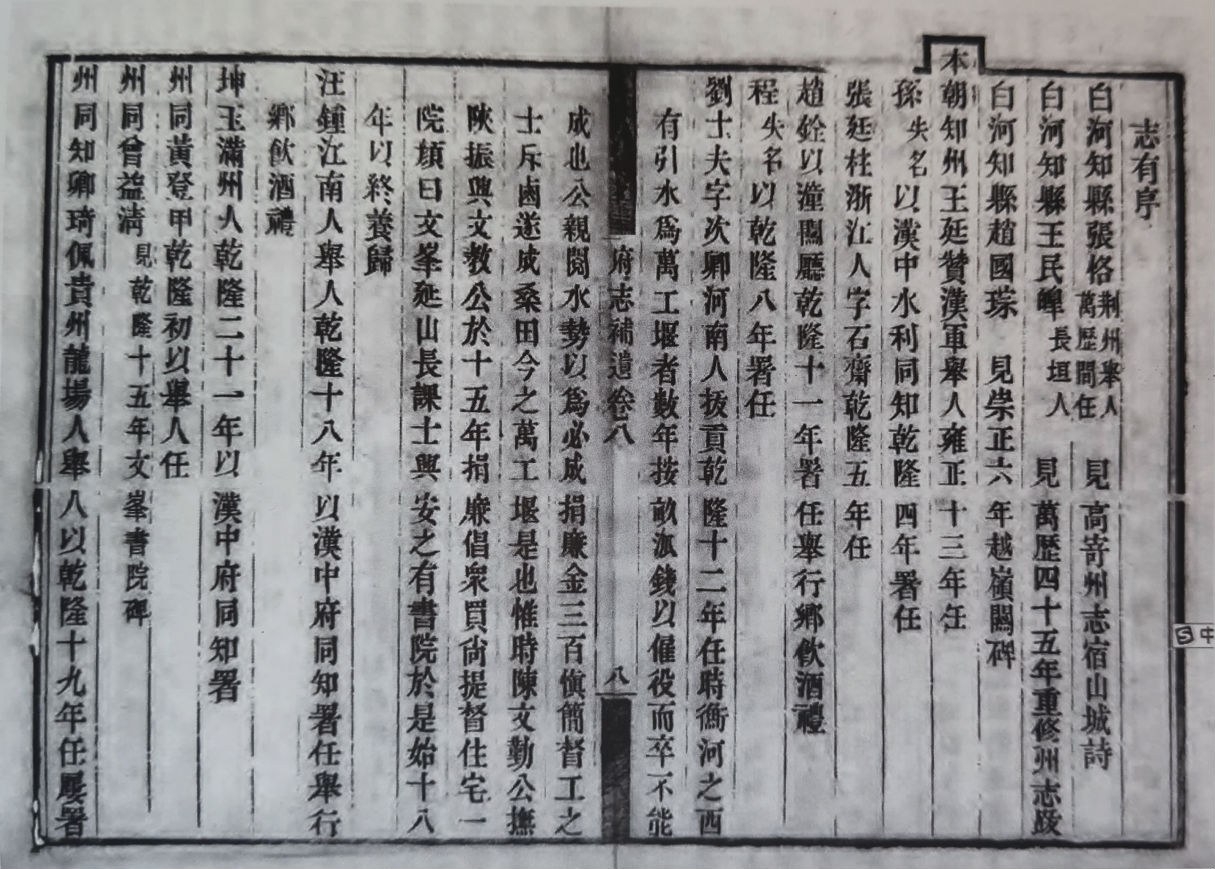 志有序
白河知縣張恪荆州舉人萬歷間任 見高嵜州志宿山城詩
白河知縣王民皥長垣人 見萬歷四十五年重修州志跋
白河知縣趙國琮 見崇正六年越嶺關碑
本朝知州王廷贊漢軍舉人雍正十三年任
孫失名以漢中水利同知乾隆四年署任
張廷柱浙江人字石齋乾隆五年任
趙銓以潼關廳乾隆十一年署任舉行鄉飲酒禮
程失名以乾隆八年署任
劉士夫字次卿河南人拔貢乾隆十二年任時衡河之西
有引水爲萬工堰者數年按畝派錢以僱役而卒不能
府志補遺卷八 八
成也公親閱水勢以爲必成捐廉金三百愼簡督工之
士斥鹵遂成桑田今之萬工堰是也惟時陳文勤公撫
陝振興文教公於十五年捐廉倡衆買尙提督住宅一
院顏曰文峯延山長課士興安之有書院於是始十八
年以終養歸
汪鍾江南人舉人乾隆十八年以漢中府同知署任舉行
鄉飲酒禮
坤玉滿州人乾隆二十一年以漢中府同知署
州同黃登甲乾隆初以舉人任
州同曾益清見乾隆十五年文峯書院碑
州同知卿琦佩貴州龍場人舉人以乾隆十九年任屢署
中
5